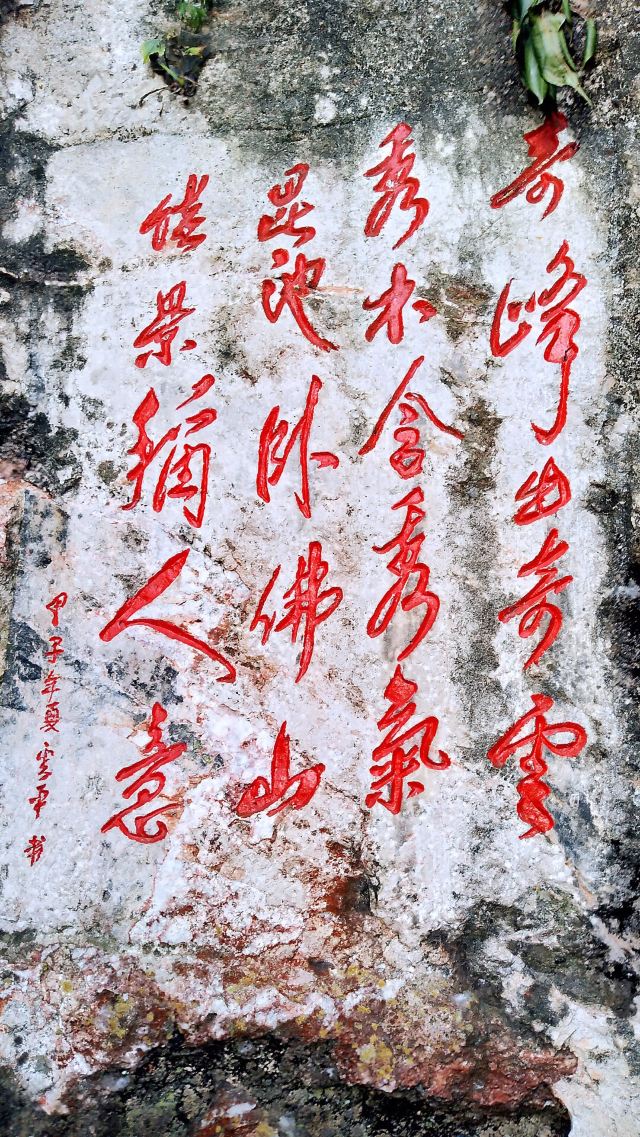 奇峰出奇雲
秀木含秀氣
昆池卧佛山
佳景稱人意
甲子年夏雲平书